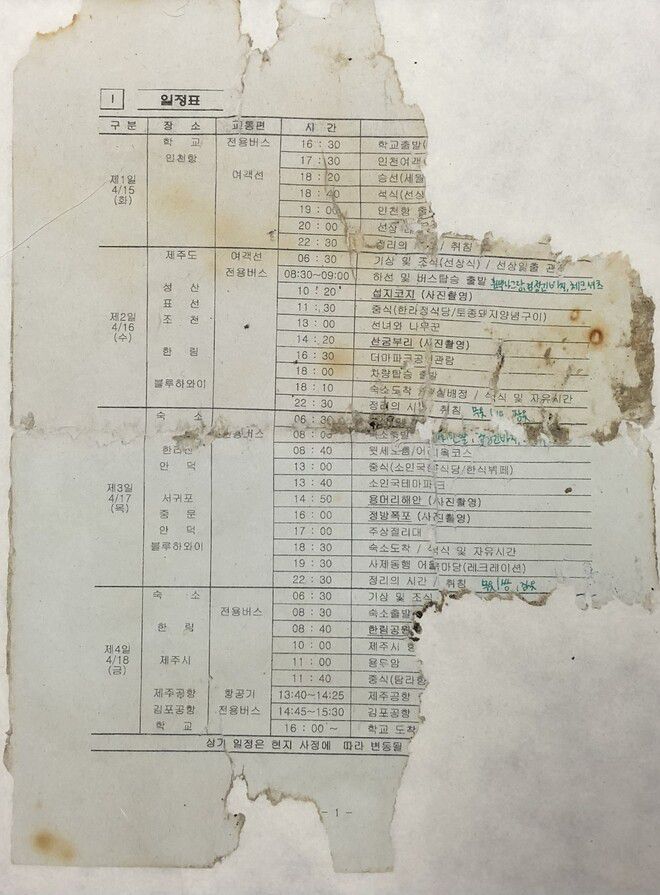 1 일정표
구 분 장 소 교통편 시 간
학 교 전용버스 16 : 30 학교출발(
인천항 17 : 30 인천여객
제1일 여객선 18 : 20 승선(세월
4/15 18 : 40 석식(선상
(화) 19 : 00 인천항 출
20 : 00 선상
22 : 30 정리의 / 취침
제주도 여객선 06 : 30 기상 및 조식(선상식) / 선상일출 관
전용버스 08:30~09:00 하선 및 버스탑승 출발
성 산 10 : 20 섭지코지 (사진촬영)
제2일 표 선 11 : 30 중식(한라정식당/토종돼지양념구이)
4/16 조 천 13 : 00 선녀와 나무꾼
(수) 14 : 20 산굼부리 (사진촬영)
한 림 16 : 30 더마파크공연관람
18 : 00 차량탑승 출발
블루하와이 18 : 10 숙소도착 / 실배정 / 석식 및 자유시간
22 : 30 정리의 시간 / 취침
숙 소 06 : 30
전용버스 08 : 00 숙소출발
한라산 08 : 40 윗세오름/어리목코스
안 덕 13 : 00 중식(소인국 식당/한식뷔페)
제3일 13 : 40 소인국테마파크
4/17 서귀포 14 : 50 용머리해안 (사진촬영)
(목) 중 문 16 : 00 정방폭포 (사진촬영)
안 덕 17 : 00 주상절리대
블루하와이 18 : 30 숙소도착 / 석식 및 자유시간
19 : 30 사제동행 어울마당(레크레이션)
22 : 30 정리의 시간 / 취침
숙 소 06 : 30 기상 및 조식
전용버스 08 : 30 숙소출발
한 림 08 : 40 한림공원
제4일 10 : 00 제주시
4/18 제주시 11 : 00 용두암
(금) 11 : 40 중식(탐라
제주공항 항공기 13:40~14:25 제주공항
김포공항 전용버스 14:45~15:30 김포공항
학 교 16 : 00 ~ 학교 도착
상기 일정은 현지 사정에 따라 변동될
- 1 -